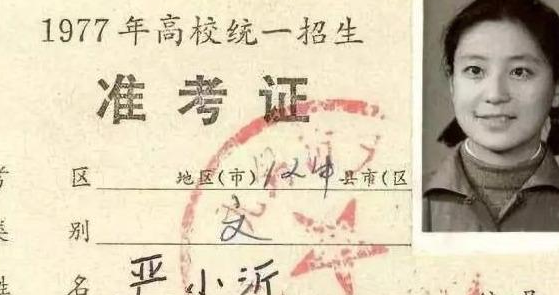 1977年高校统一招生
准考证
考区 地区(市)12中县市(区
类别 文
姓名 严小沂